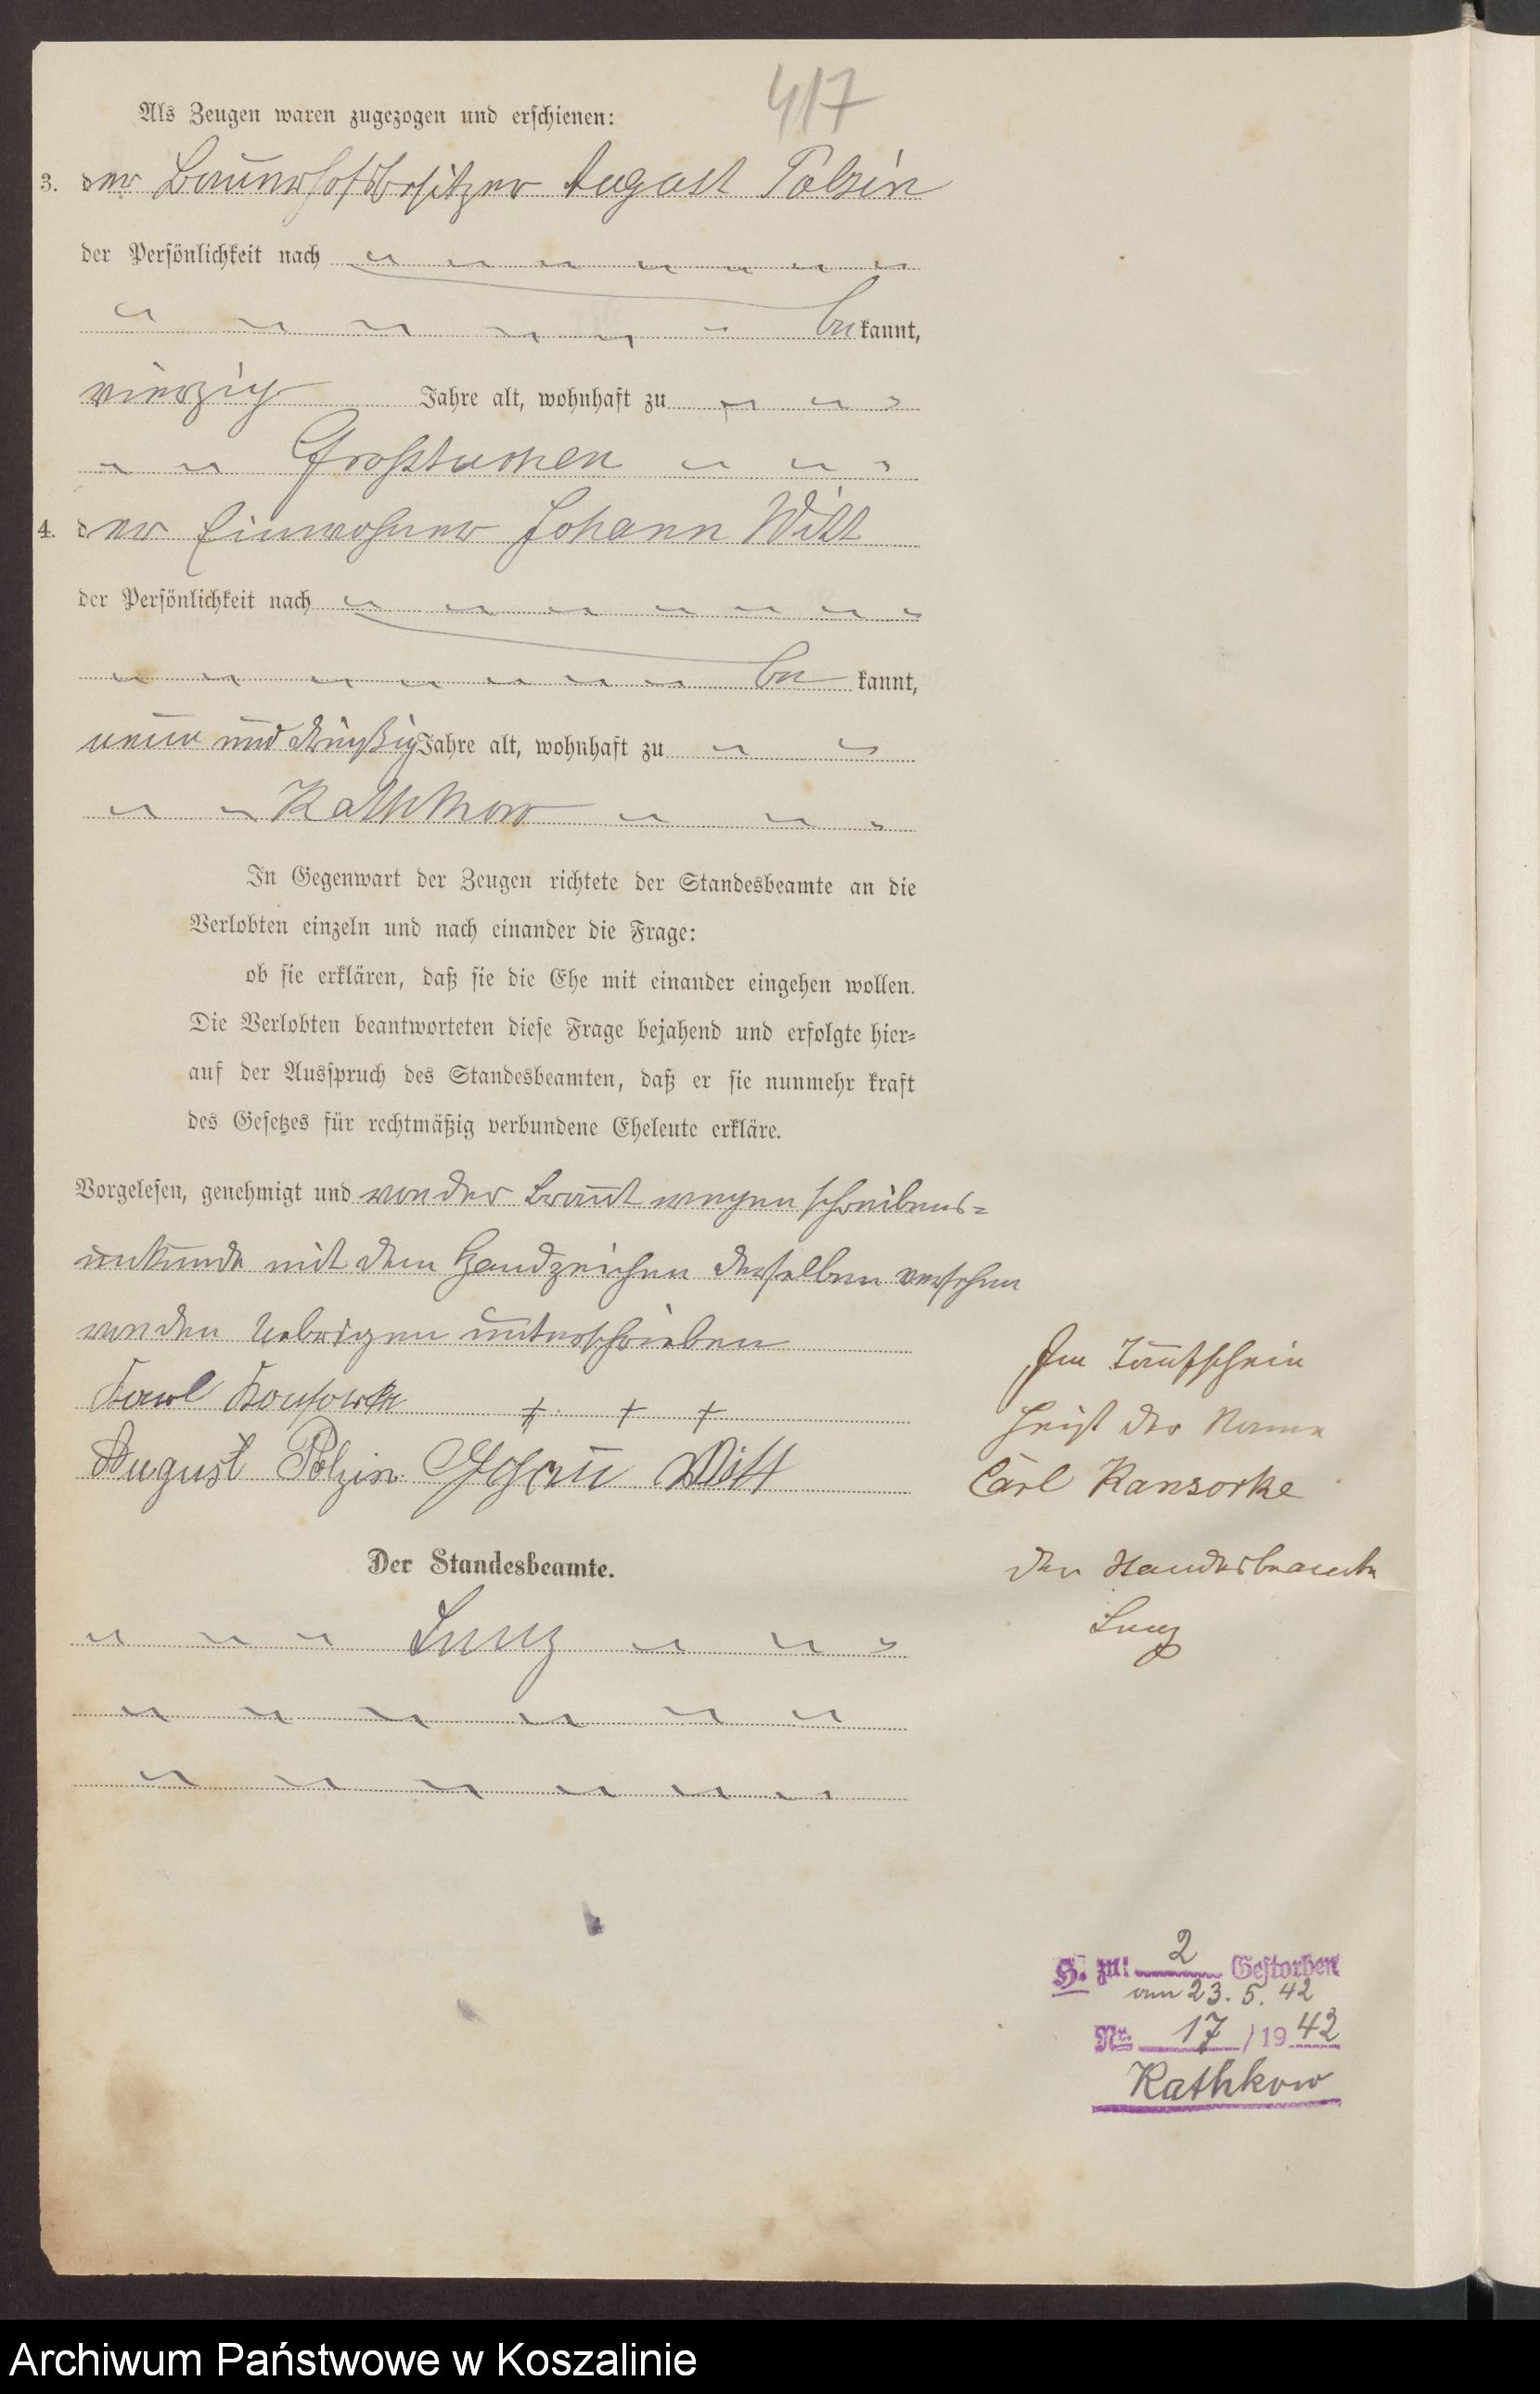 4/7
Als Zeugen waren zugezogen und erschienen:
3. der Bauerhofsbesitzer August Polzin
der Persönlichkeit nach
be kannt,
vierzig Jahre alt, wohnhaft zu
Großtuchen
4. der Einwohner Johann Witt
der Persönlichkeit nach
be kannt,
neun und dreißig Jahre alt, wohnhaft zu
Kathkow
In Gegenwart der Zeugen richtete der Standesbeamte an die
Verlobten einzeln und nach einander die Frage:
ob sie erklären, daß sie die Ehe mit einander eingehen wollen.
Die Verlobten beantworteten diese Frage bejahend und erfolgte hier=
auf der Ausspruch des Standesbeamten, daß er sie nunmehr kraft
des Gesetzes für rechtmäßig verbundene Eheleute erkläre.
Vorgelesen, genehmigt und von der Braut wegen Schreibens=
unkunde mit dem Handzeichen derselben versehen
von den Uebrigen unterschrieben
Karl + + +
August Polzin Johann Witt
Im Taufschein
heißt der Name
Carl Kansorke
Der Standesbeamte
Der Standesbeamte.
H. zu: 2 Gestorben
am 23. 5. 42
Nr. 17 / 19 42
Kathkow
Archiwum Państwowe w Koszalinie